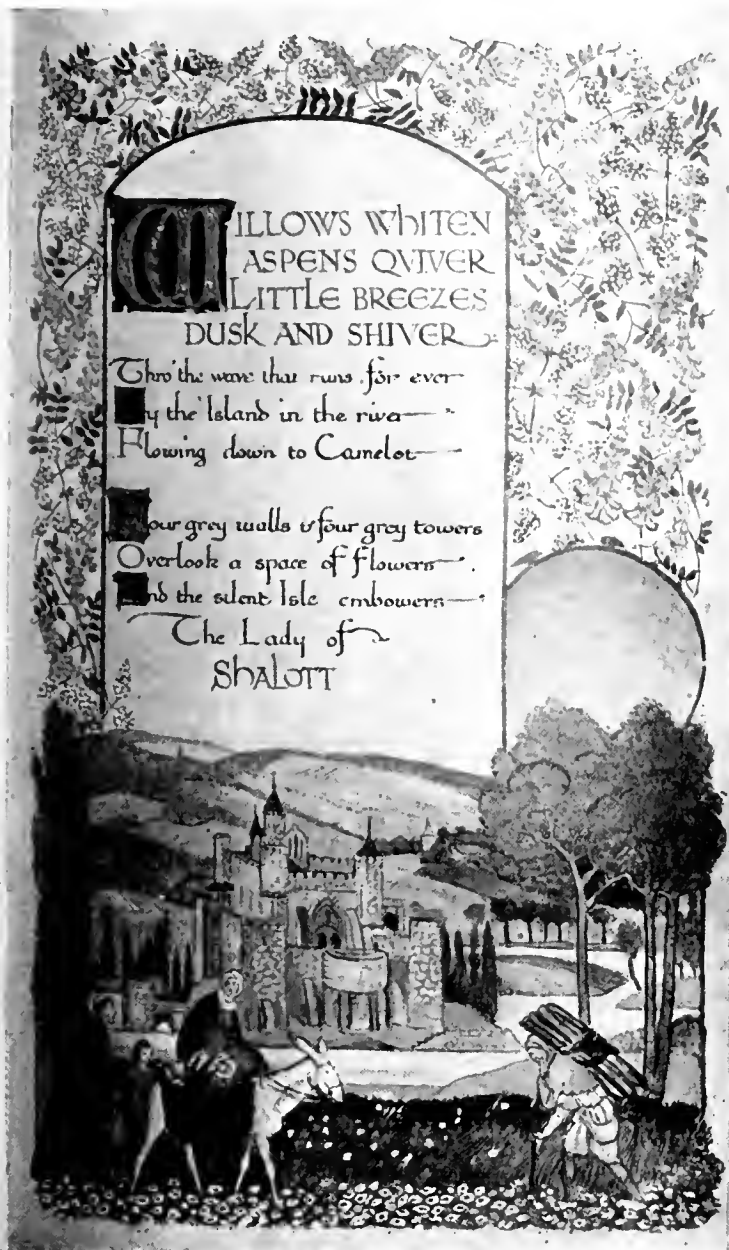 WILLOWS WhITEN
ASPENS QVIVER
LITTLE BREEZES
DUSK AND SHIVER
Thro' the wave that runs for ever
By the Island in the river
Flowing down to Camelot
Four grey walls & four grey towers
Overlook a space of flowers
And the silent Isle embowers
The Lady of
ShALOTT